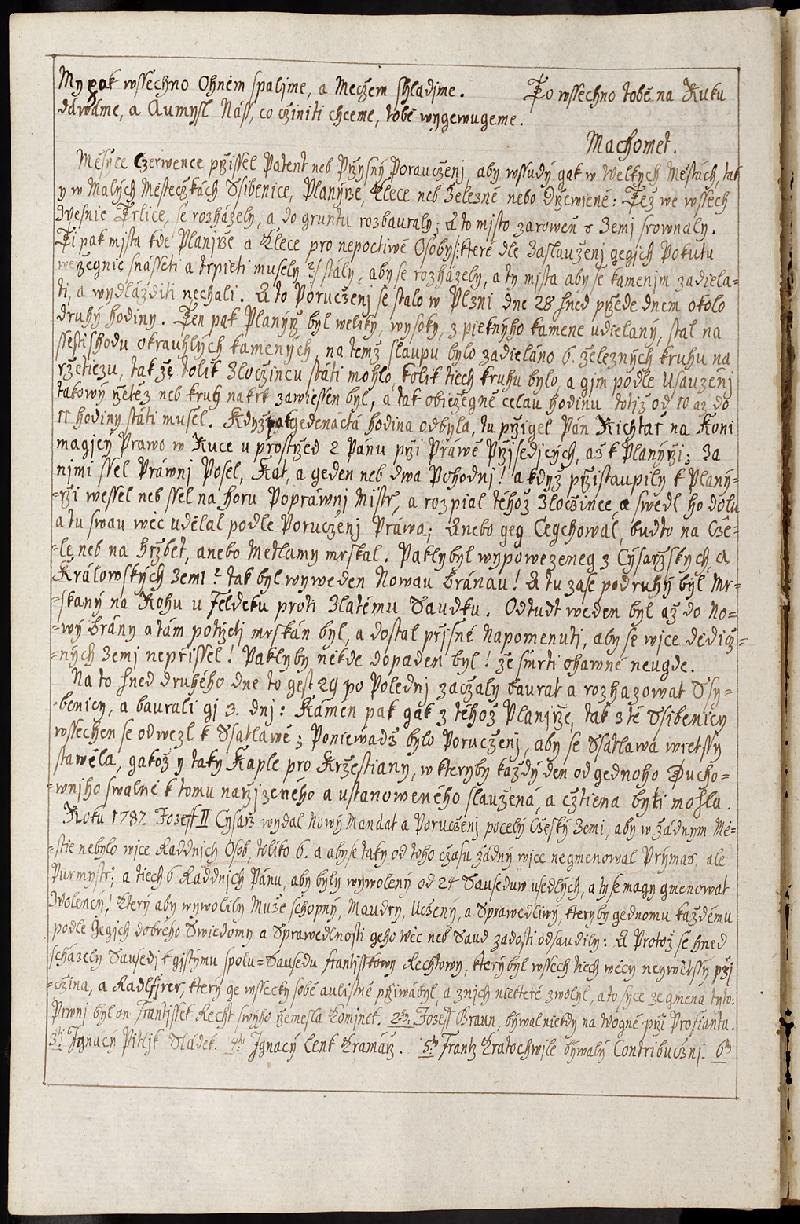 My pak wssechno Ohněm spaljme, a Mečzem shladjme. To wssechno tobě na Ruku
dáwáme, a Aumysl Náss, co cžiniti chceme, tobě wygewugeme.
Machomet.
Měsýce Czerwence přzissěl Patent neb Přzýsný Poraucženj, aby wssudý gak w Welkých Městách, tak
y w Malých Městecžkách Ssibenice, Planýrže, Klece neb Železné nebo Dřzewěné: Též we wssech
Wesnic Trlice, se rozházely, a do gruntu rozbauraly; A to mjsto zároweň s Zemj srownaly.
Ti pak mjsta kde Planjrže a Klece pro nepoctiwé Osoby: které dle Zaslauženj gegich Pokutu
weřegnie snásseti a trpieti musely :/ stály, aby se rozházely, a ty mjsta aby se kamenjm zadiela-
ti, a wydláżditi nechali. A to Porucženj se stalo w Plzni dne 28 hned přzede dnem okolo
druhý hodiny. Ten pak Planýrž byl weliký, wysoký, z pieknýho kamene udielaný, stál na
ssesti shodu okrauhlých kamených, na temž slaupu bylo zadieláno 6. železných kruhu na
ržetiezu, tak že tolik Zlocžincu státi mohlo, kolik tiech kruhu bylo, a gim podle Usauzenj
takowý řetěz neb kruh na krk zawiessen byl, a tak obiecžegně celau hodinu totiž od 10 až do
11 hodiny státi musel. Když pak gedenáctá hodina odbyla, tu přzigel Pán Richtař na Koni
magjcý Prawo w Ruce u prostřzed 2 Pánu přzi Práwě Přzjsedjcých, aš k Planýrži; Za
njmi ssel Práwnj Posel, Kat, a geden neb dwa Pohodnj! a když přzistaupily k Planý-
-rži wessel neb ssel na horu Popráwnj Mistr, a rozpial téhož Zlocžince, a swedl ho dolu
a tu swau wěc udělal podle Porucženj Práwa; Anebo geg Cegchowal, buďto na Cže-
-le neb na Hržbět, anebo Metlamy mrskal. Paklyby byl wypowězeneg z Cýsařzských, a
Králowských Zemi: tak byl wyweden Nowau Bránau! A tu zase podruhý byl Mr-
-skaný na Rohu u Feldeku proti Zlatému Saudku. Odtudť weden byl až do No-
-wý brány a tám potřzetj mrskán byl, a dostal přjsné Napomenuti, aby se wjce dědicž-
-ných Zemj nepřissěl! Paklyby někde dopaden byl! že smrti ohawné neugde.
Na to hned druhého dne to gest 29 po Polednj zacžaly baurat a rozhazowat Ssy-
-benicy, a baurali gj 3 dnj: Kámen pak gak z téhož Planjrže, tak z té Ssibenicy
wssechen se odwezl k Ssatlawě; Poniewadž bylo Porucženj, aby se Ssátlawá wretssy
stawěla, gakož y taky Kaple pro Kržestiany, w kteryby každý den od gednoho Ducho-
-wnjho swalně k tomu nařjzeného a ustanoweného slaužená, a cžtiena byti mohla.
Roku 1787. Jozeff II Cýsařz wydal Nowý Mandat a Porucženj pocelý Cžeský Zemi, aby w žadnym Mě-
-stie nebylo wjce Raddnjch Osob, toliko 6. a abyse taky od toho cžasu žádný wjce negmenowal Prýmas, ale
Purmystr; a tiech 6 Raddnjch Pánu, aby byly wywolený od 24 Sauseduw usedlých, a ty se magy gmenowat
Wolency! Který aby wywolily Muže schopný, Maudrý, Ucžený, a Sprawedliwý, kteryby gednomu každému
podle Gegich dobrého Swědomy a Sprawedlnosti geho wěc neb Saud zadosti odsaudily: A Protož se hned
scházely Sausedj k gistýmu spolu=Sausedu Frantisskowy Rechtowy, který byl wssech tiech wěcy neywětssy přzj
-cžina, a Radlfjrer, který ge wssecky sobě aulisně přziwábyl, a znjch niekteré zwolyl, a to sýce ze gména tyto.
Prwnj byl on Frantissek Recht swýho řzemesla Kominek. 2hý Jozeff Braun, býwal niekdy na Wogně přzi Profianta.
3tí Jgnacý Pitljk Sládek. 4tý Jgnacý Lenk Kramářz. 5tý Frantz Kratochwjle býwalý Contribucžnj. 6tý